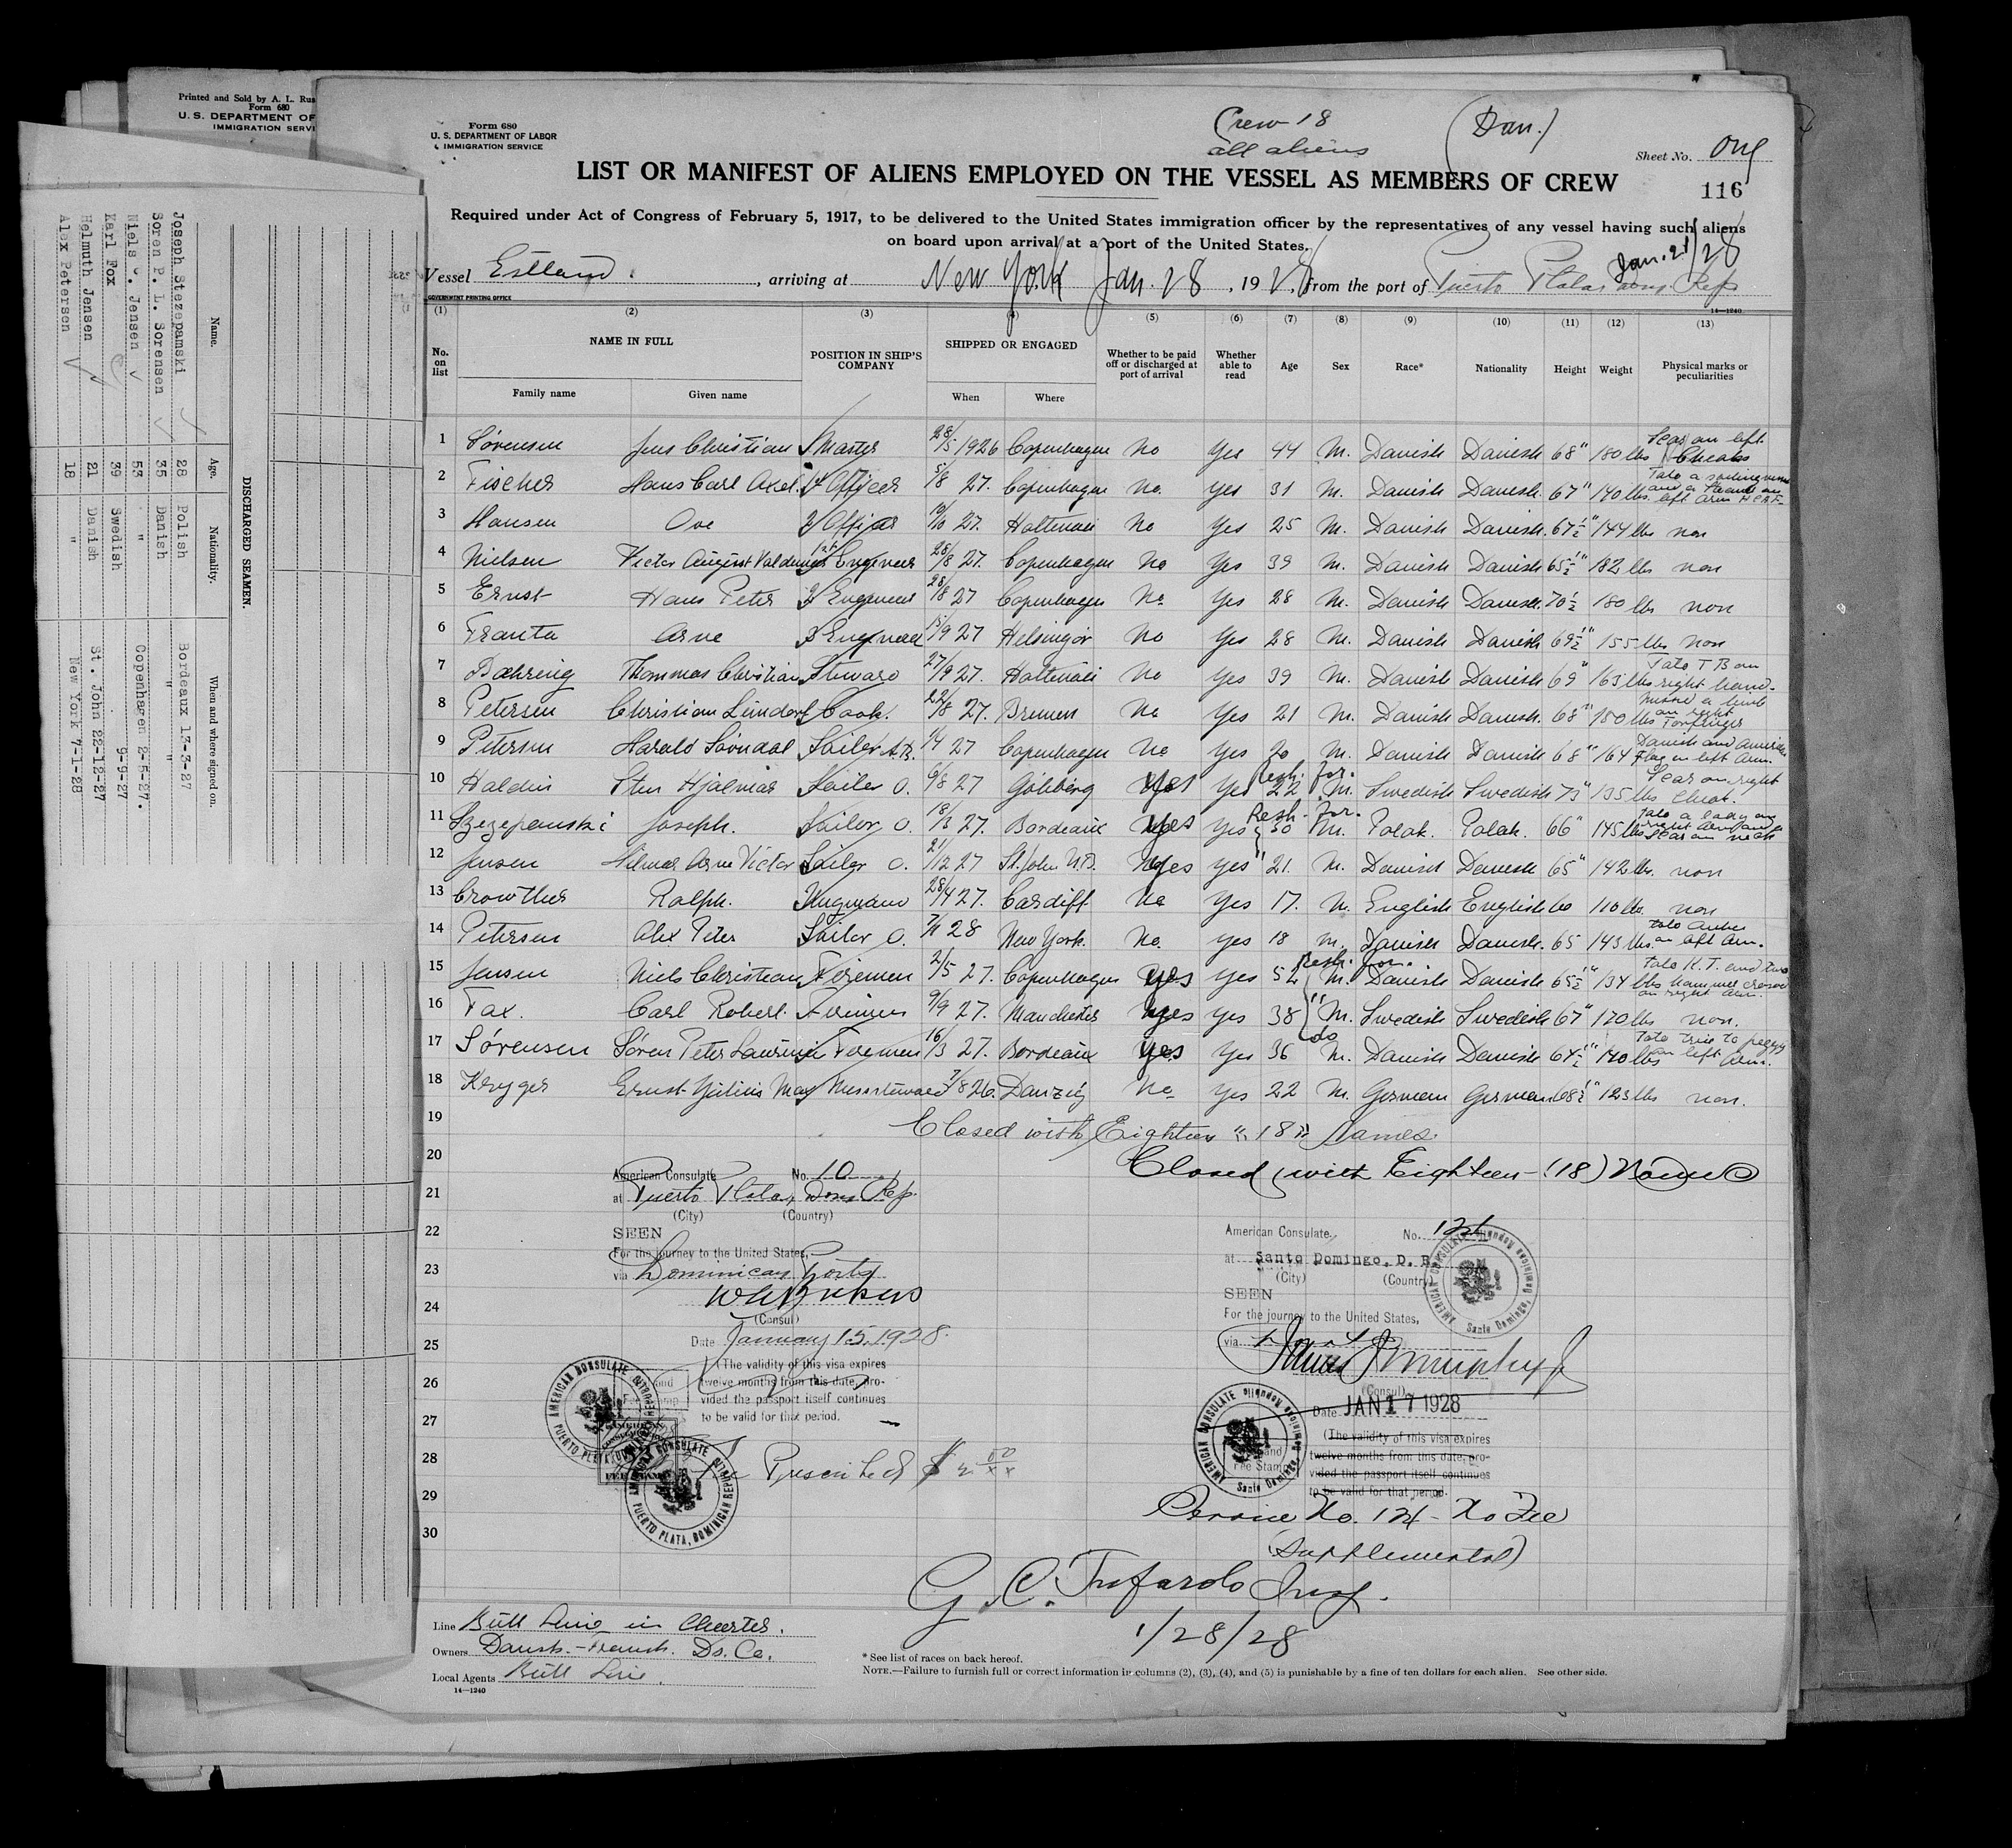 Printed and Sold by A. L. Rus
Form 680
U. S. DEPARTMENT OF
IMMIGRATION SERVI
DISCHARGED SEAMEN.
Name. Age. Nationality. When and where signed on.
Joseph Stezepamski 28 Polish Bordeaux 13-3-27
Soren P. L. Sorensen 35 Danish " "
Niels C. Jensen 53 " Copenhagen 2-5-27.
Karl Fox 39 Swedish 9-9-27
Helmuth Jensen 21 Danish St. John 22-12-27
Alex Petersen 18 " New York 7-1-28
Form 680
U. S. DEPARTMENT OF LABOR
IMMIGRATION SERVICE
Crew 18
all aliens
(Dan.)
Sheet No. One
116
LIST OR MANIFEST OF ALIENS EMPLOYED ON THE VESSEL AS MEMBERS OF CREW
Required under Act of Congress of February 5, 1917, to be delivered to the United States immigration officer by the representatives of any vessel having such aliens
on board upon arrival at a port of the United States.
Jan. 21/28
Vessel Estland, arriving at New York Jan. 28, 1928, from the port of Puerto Plata, Dom. Rep.
GOVERNMENT PRINTING OFFICE
14—1240
(1) (2) (3) (4) (5) (6) (7) (8) (9) (10) (11) (12) (13)
No. on list NAME IN FULL POSITION IN SHIP'S COMPANY SHIPPED OR ENGAGED Whether to be paid off or discharged at port of arrival Whether able to read Age Sex Race* Nationality Height Weight Physical marks or peculiarities
Family name Given name When Where
1 Sørensen Jens Christian Master 28/5 1926 Copenhagen No Yes 44 M. Danish Danish 68" 180 lbs Scar on left Cheak
2 Fischer Hans Carl Axel. 1 Officer 5/8 27. Copenhagen No. Yes 31 M. Danish Danish. 67" 140 lbs. left arm
3 Hansen Ove 2 Officer 27. Holtenau No Yes 25 M. Danish Danish. 67½" 144 lbs non
4 Nielsen Victor August Valdemar 1st Engineer 28/8 27. Copenhagen No Yes 39 M. Danish Danish 65½" 182 lbs non
5 Ernst Hans Peter 2 Engineer 28/8 27 Copenhagen No Yes 28 M. Danish Danish. 70½ 180 lbs non
6 Frantz Arne 3 Engineer 15/9 27 Helsingør No Yes 28 M. Danish Danish 69½" 155 lbs non
7 Dæhring Thommas Christian Steward 27/9 27. Holtenau No Yes 39 M. Danish Danish 69" 163 lbs Tato T B on right hand.
8 Petersen Christian Lundorf Cook. 22/8 27. Bremen No Yes 21 M. Danish Danish. 68" 150 lbs on right Forfinger
9 Petersen Harald Sørndal Sailor A.B. 27 Copenhagen No Yes 20 M. Danish Danish 68" 164 Danish and American Flag on left Arm.
10 Haldin Sten Hjalmar Sailor O. 6/8 27 Göteborg Yes Yes 22 M. Swedish Swedish 73" 135 lbs Scar on right Cheak.
11 Szezepanski Joseph. Sailor O. 27. Bordeaux Yes Yes 30 M. Polak. Polak. 66" 145 lbs Tato a lady on right Arm and Scar on neck
12 Jensen Hilmar Arne Victor Sailor O. 21/12 27 St. John N.B. Yes Yes 21. M. Danish Danish 65" 142 lbs. non
13 Crowther Ralph. 28/4 27. Cardiff No Yes 17. M. English English 60 110 lbs. non
14 Petersen Alex Peter Sailor O. 7/1 28 New York. No. Yes 18 M. Danish Danish. 65 143 lbs. Tato Anker on left Arm.
15 Jensen Niels Christian Firemen 2/5 27. Copenhagen Yes Yes 52 M. Danish Danish 65½" 134 lbs on right Arm.
16 Fax. Carl Robert. Firemen 9/9 27. Manchester Yes Yes 38 M. Swedish Swedish 67" 170 lbs non.
17 Sørensen Søren Peter Laurin Firemen 16/3 27. Bordeaux Yes Yes 36 do M. Danish Danish 64½" 140 lbs on left Arm.
18 Kryger Ernst Julius Max Messsteward 7/8 26. Danzig No Yes 22 M. German German 68½" 123 lbs non.
19 Closed with Eighteen "18" Names.
20 Closed (with Eighteen - (18) Names
21
22
23
24
25
26
27
28
29
30
American Consulate No. 10
at Puerto Plata, Dom. Rep.
(City) (Country)
SEEN
For the journey to the United States,
via Dominican Ports
(Consul)
Date January 15, 1928.
(The validity of this visa expires
twelve months from this date, pro-
vided the passport itself continues
to be valid for that period.
AMERICAN CONSULATE PUERTO PLATA, DOMINICAN REPUBLIC
Fee Prescribed $2
American Consulate No. 124
at Santo Domingo, D. R.
(City) (Country)
SEEN
For the journey to the United States,
via
(Consul)
Date JAN 17 1928
(The validity of this visa expires
twelve months from this date, pro-
vided the passport itself continues
to be valid for that period.
AMERICAN CONSULATE Santo Domingo, Dominican Republic
Service No. 124 - No Fee
(Supplemental)
1/28/28
Line Bull Line in Charter.
Owners Dansk-Fransk. Ds. Co.
Local Agents Bull Line.
14—1240
* See list of races on back hereof.
NOTE.—Failure to furnish full or correct information in columns (2), (3), (4), and (5) is punishable by a fine of ten dollars for each alien. See other side.